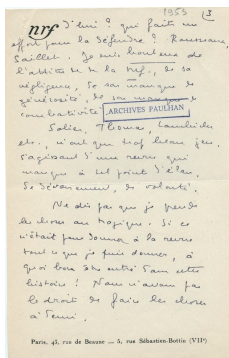 1953 (3
nrf
d'lui ? qui fait un
effort pour la défendre ? Rousseaux,
Saillet. Je suis honteux de
l'attitude de la nrf, de sa
négligence, de son manque de
générosité, de son manque de
combativité
ARCHIVES PAULHAN
Solier, Thomas, Lambrichs
etc., n'ont que trop beau jeu.
S'agissant d'une revue qui
manque à tel point d'élan,
de dévouement, de volonté.
Ne dis pas que je prends
les choses au tragique. Si ce
n'était pour donner à la revue
tout ce que je puis donner, à
quoi bon être entré dans cette
histoire ! Nous n'avons pas
le droit de faire les choses
à demi.
Paris, 43, rue de Beaune — 5, rue Sébastien-Bottin (VIIᵉ)